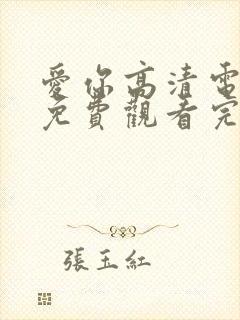 愛你高清電
免費觀看完
張玉紅